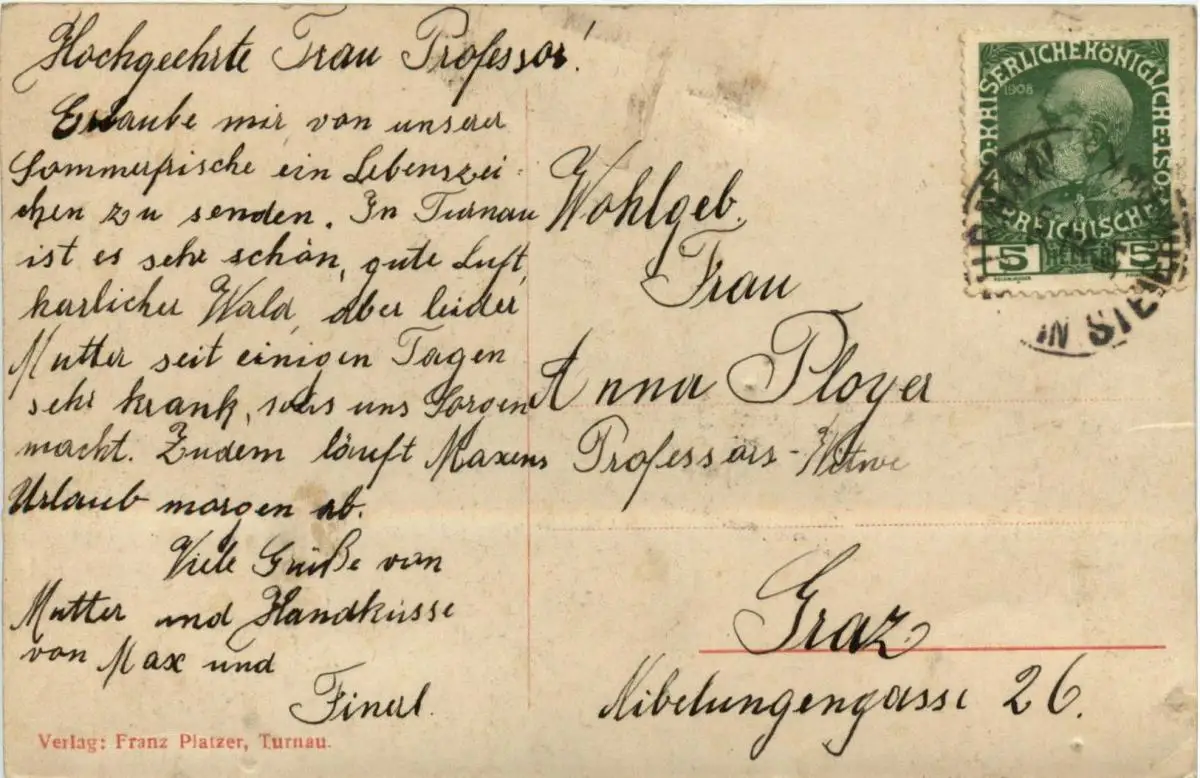 Hochgeehrte Frau Professor!
Erlaube mir von unserer
Sommerfrische ein Lebenszei-
chen zu senden. In Turnau
ist es sehr schön, gute Luft,
Wald, aber leider
Mutter seit einigen Tagen
sehr krank, was uns Sorgen
macht. Zudem läuft Maxens
Urlaub morgen ab.
Viele Grüße von
Mutter und Handküsse
von Max und
Finerl.
Verlag: Franz Platzer, Turnau.
KAISERLICHE KÖNIGLICHE ÖSTERREICHISCHE
1908
5 HELLER 5
IN STEIERM
Wohlgeb.
Frau
Anna Ployer
Professors-Witwe
Graz
Nibelungengasse 26.